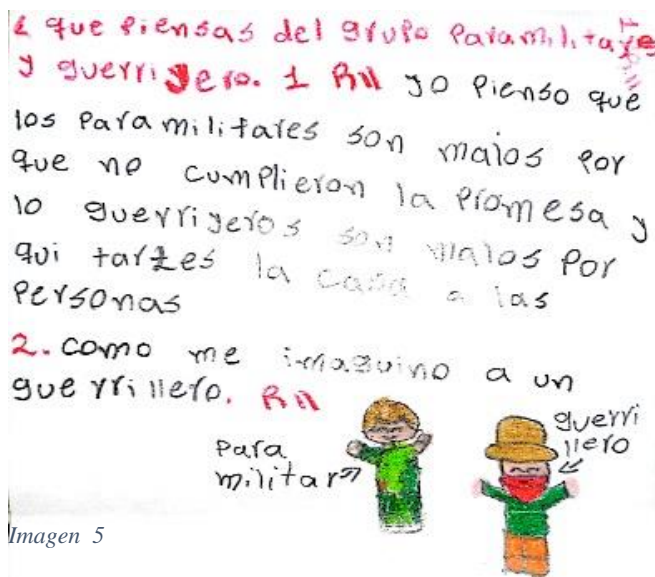 ¿ que piensas del grupo Paramilitares
y guerriyero. 1 RII yo pienso que
los Paramilitares son malos por
que no cumplieron la Promesa y
lo guerriyeros son malos por
qui tarles la casa a las
Personas
2. como me imaguino a un
guerrillero. RII
Para
militar
guerri
llero
Imagen 5